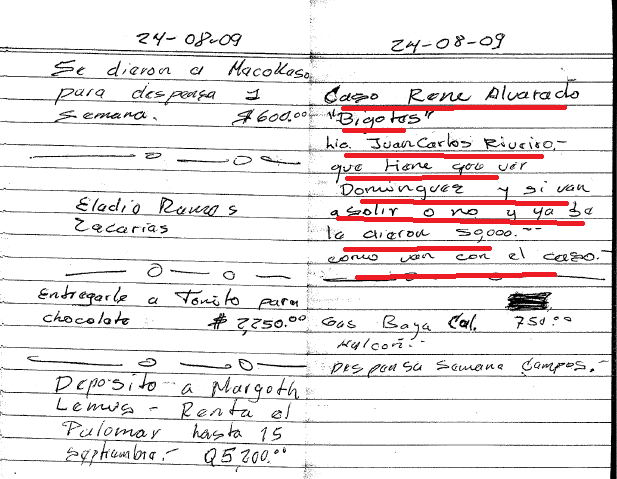 24-08-09
Se dieron a Macokaso
para despensa 1
semana. $600.00
Eladio Ramos
Zacarias
Entregarle a Toñito para
chocolate $2,250.00
Deposito a Margoth
Lemus - Renta el
Palomar hasta 15
septiembre.- Q5,200.00
24-08-09
Caso Rene Alvarado
"Bigotes"
Lic. Juan Carlos Riveiro.-
que tiene que ver
Dominguez y si van
a salir o no y ya se
le dieron 50,000.--
como van con el caso.-
Gas Baya Cal. 750.00
Halcon.-
Despensa Semana Campos.-